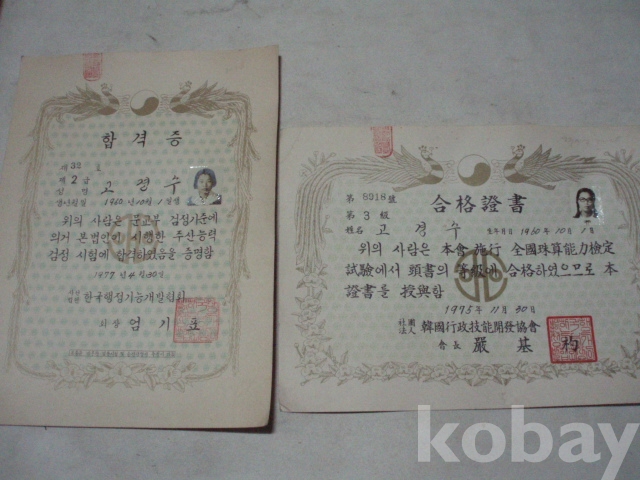 합격증
제 38 호
제 2 급
고경수
1960년 10월 1일생
위의 사람은 문교부 검정기준에
의거 본법인이 시행한 주산능력
검정 시험에 합격하였음을 증명함
1977년 4월 30일
한국행정기능개발협회
회장 엄기표
合格證書
第 8918 號
第 3 級
姓名 고경수 生年月日 1960年 10月 1日
위의 사람은 本會 施行 全國珠算能力檢定
試驗에서 頭書의 等級에 合格하였으므로 本
證書를 授與함
1975年 11月 30日
社團法人 韓國行政技能開發協會
會長 嚴基杓
kobay